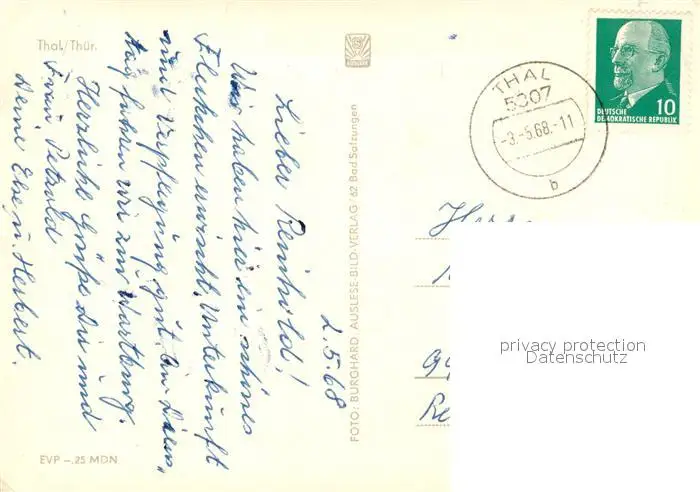 Thal/Thür.
2.5.68
Lieber Reinhold!
Wir haben hier ein schönes
Fleckchen erwischt. Unterkunft
und Verpflegung gut. Am Diens„
tag fuhren wir zur Wartburg.
Herzliche Grüße Dir und
Frau Petzold
Deine Else u. Herbert.
EVP –.25 MDN
FOTO: BURGHARD AUSLESE-BILD-VERLAG '62 Bad Salzungen
THAL
5907
-3.-5.68.-11
b
10
DEUTSCHE
DEMOKRATISCHE REPUBLIK
privacy protection
Datenschutz